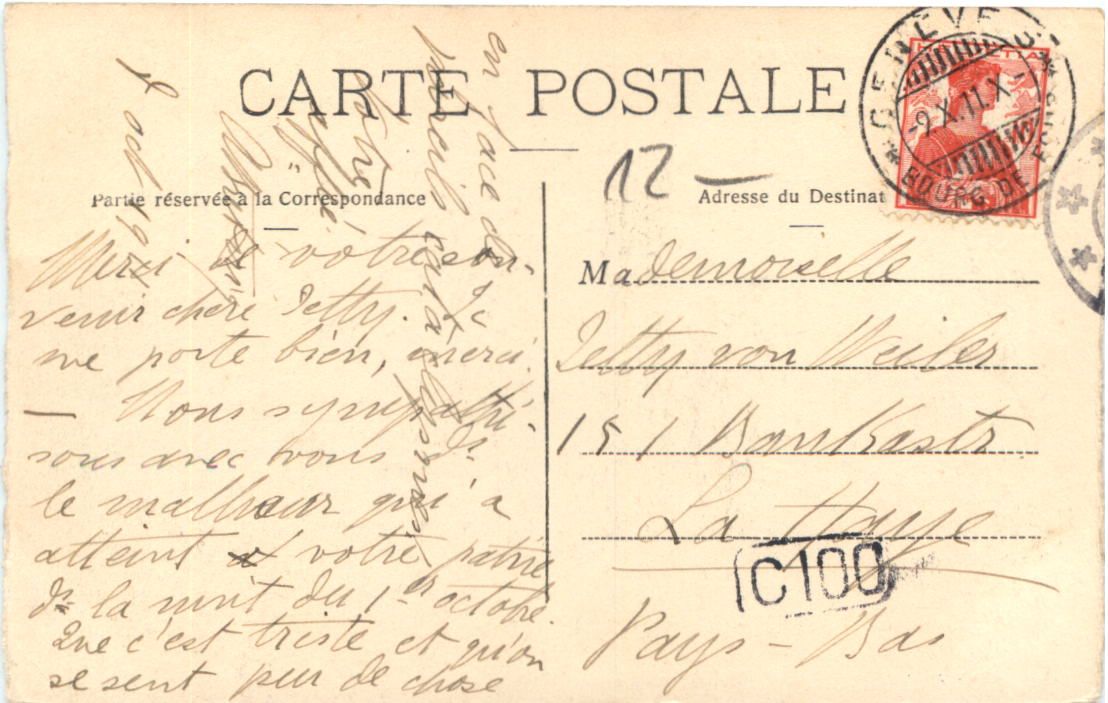 CARTE POSTALE
Partie réservée à la Correspondance
Adresse du Destinat
GENÈVE
-9.X.11.X-
BOURG-DE-FOUR
HELVETIA
12 —
Merci de votre sou-
venir chère Jetty. Je
me porte bien, merci.
— Nous sympathi-
sons avec vous ds
le malheur qui a
atteint votre patrie
ds la nuit du 1er octobre.
Que c'est triste et qu'on
se sent peu de chose
en face de
pareils
Votre
8 oct 1911
Mademoiselle
Jetty von Weiler
151 Bankastr
La Haye
C100
Pays-Bas